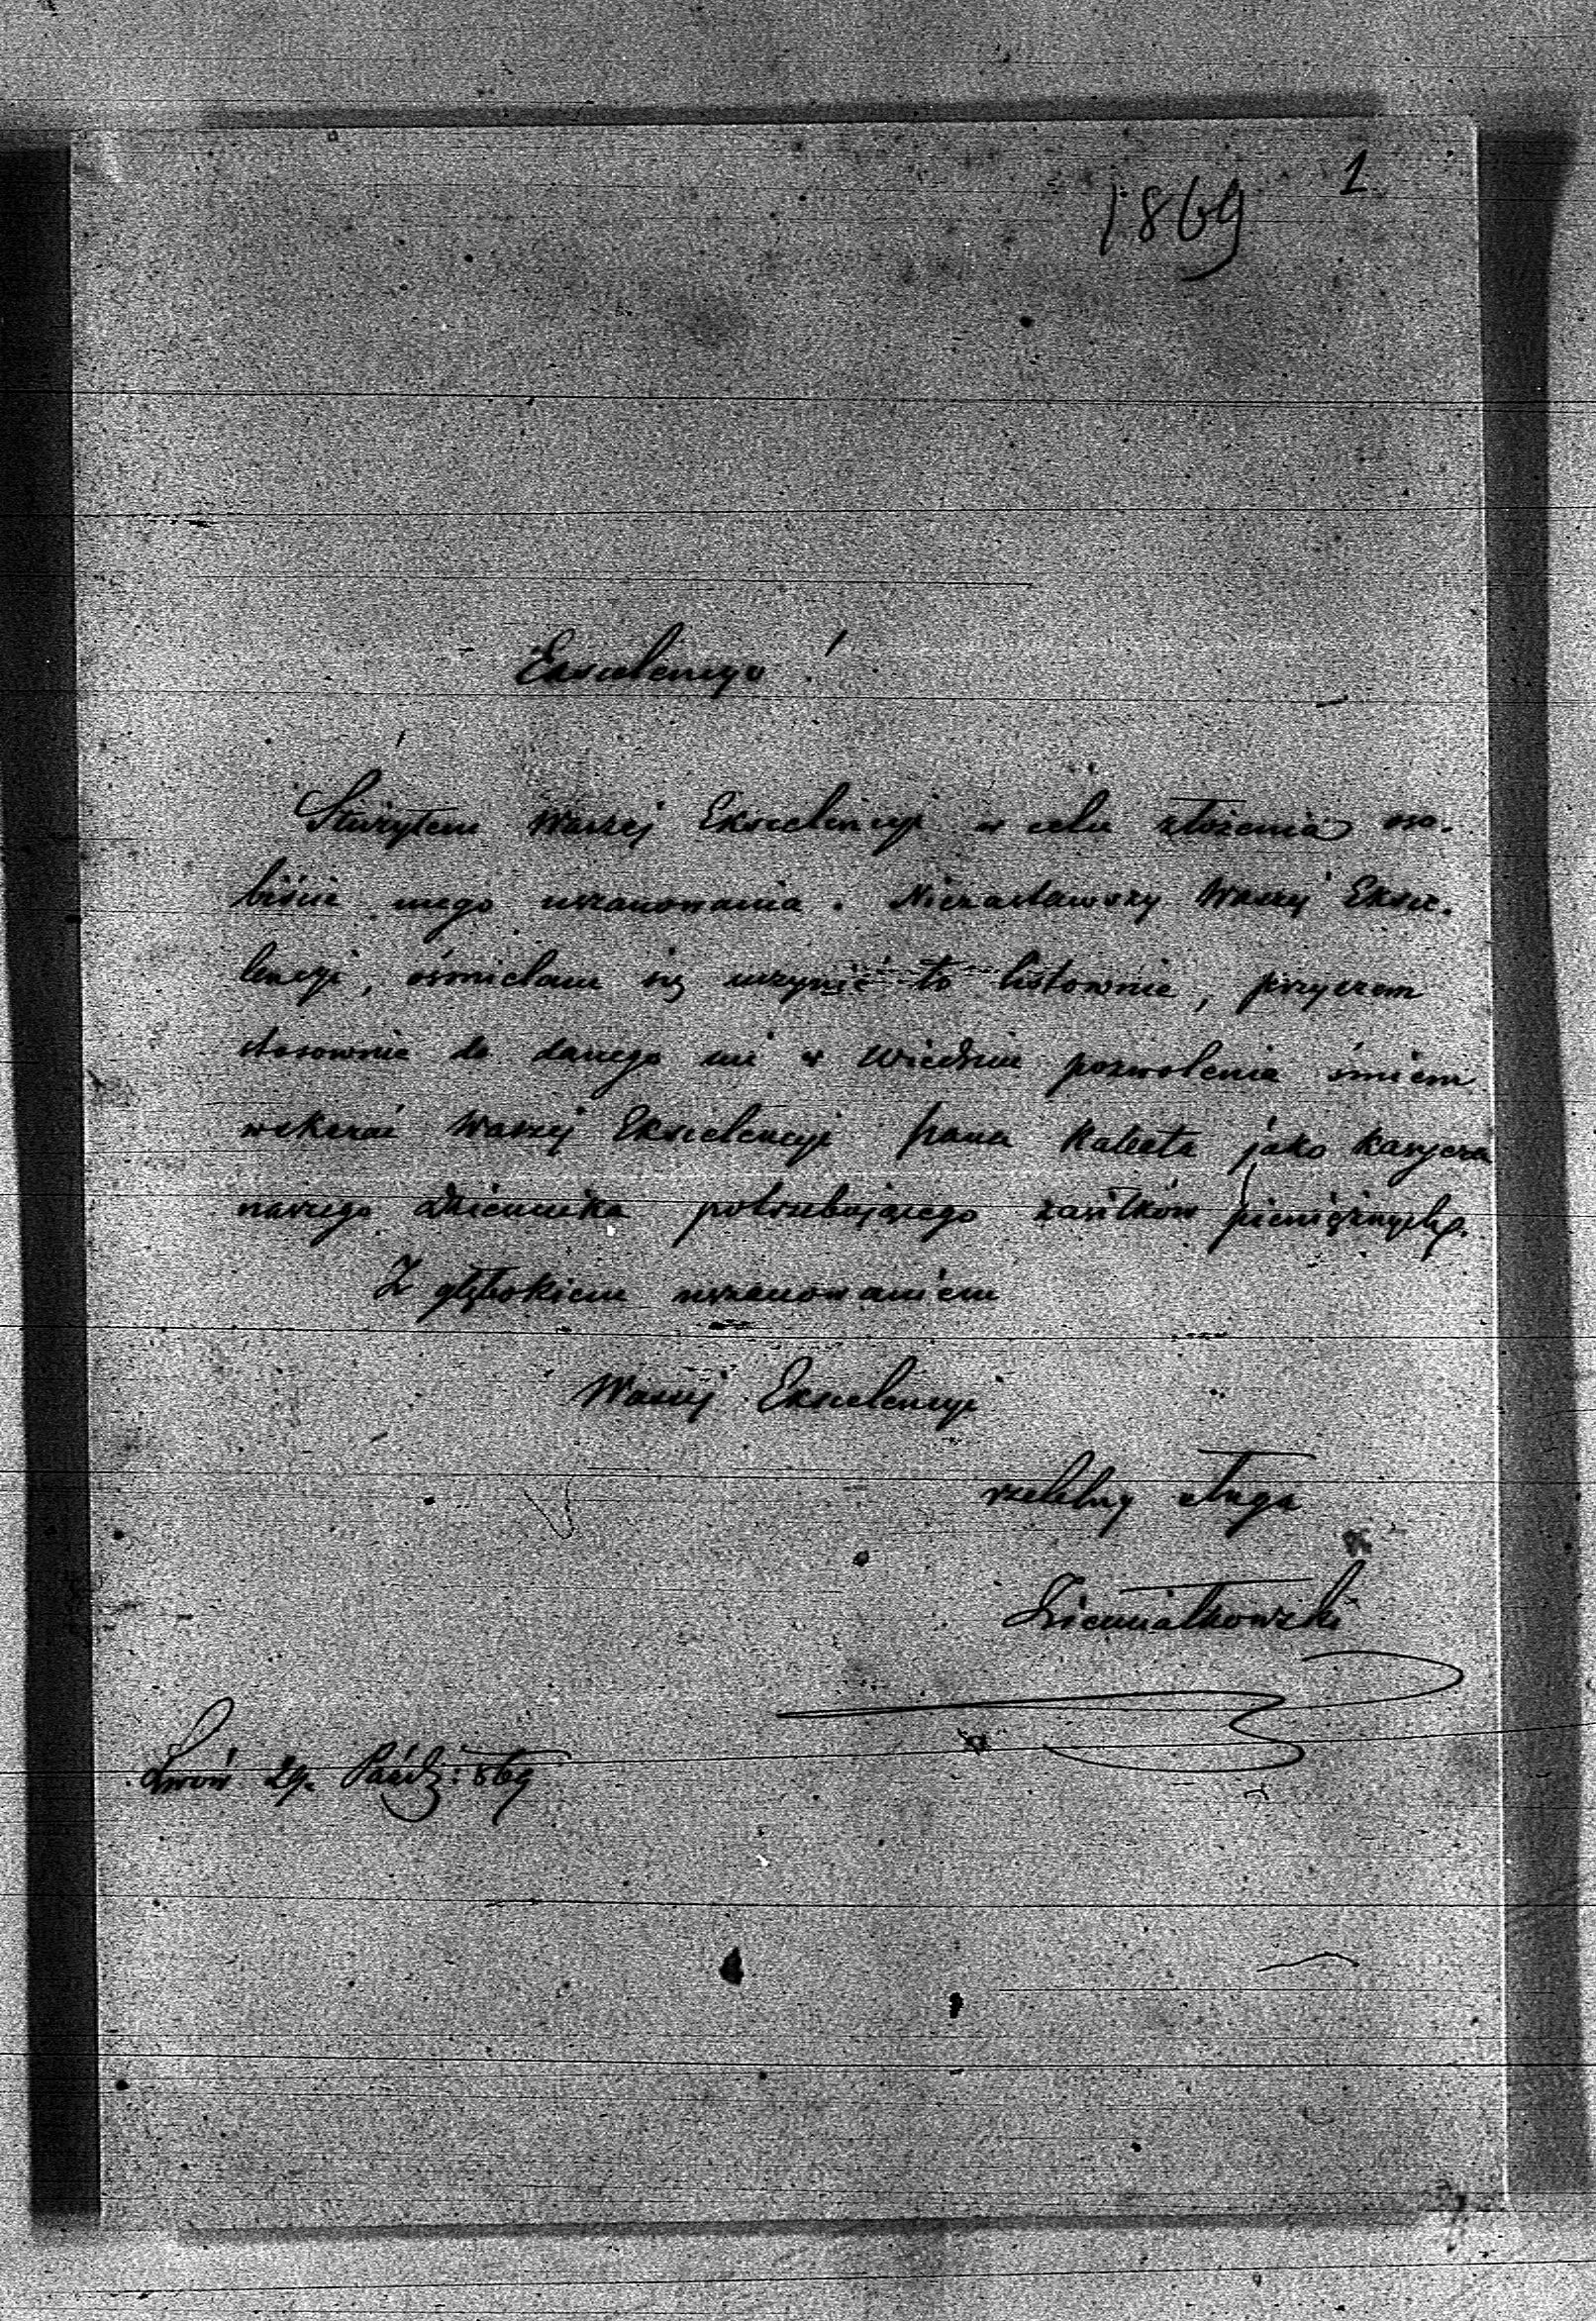 1
1869
Ekscelencyo!
Służyłem Waszej Ekscelencyi w celu złożenia oso-
biście mego uszanowania. Niezastawszy Waszej Eksce-
lencyi, ośmielam się uczynić to listownie, przyczem
stosownie do danego mi w Wiedniu pozwolenia śmiem
wskazać Waszej Ekscelencyi pana Kaleeta jako kasyera
naszego dziennika potrzebującego zasiłków pieniężnych.
Z głębokiem uszanowaniem
Waszej Ekscelencyi
rzetelny sługa
Ziemiałkowski
Lwów 29. Paźdz: 869